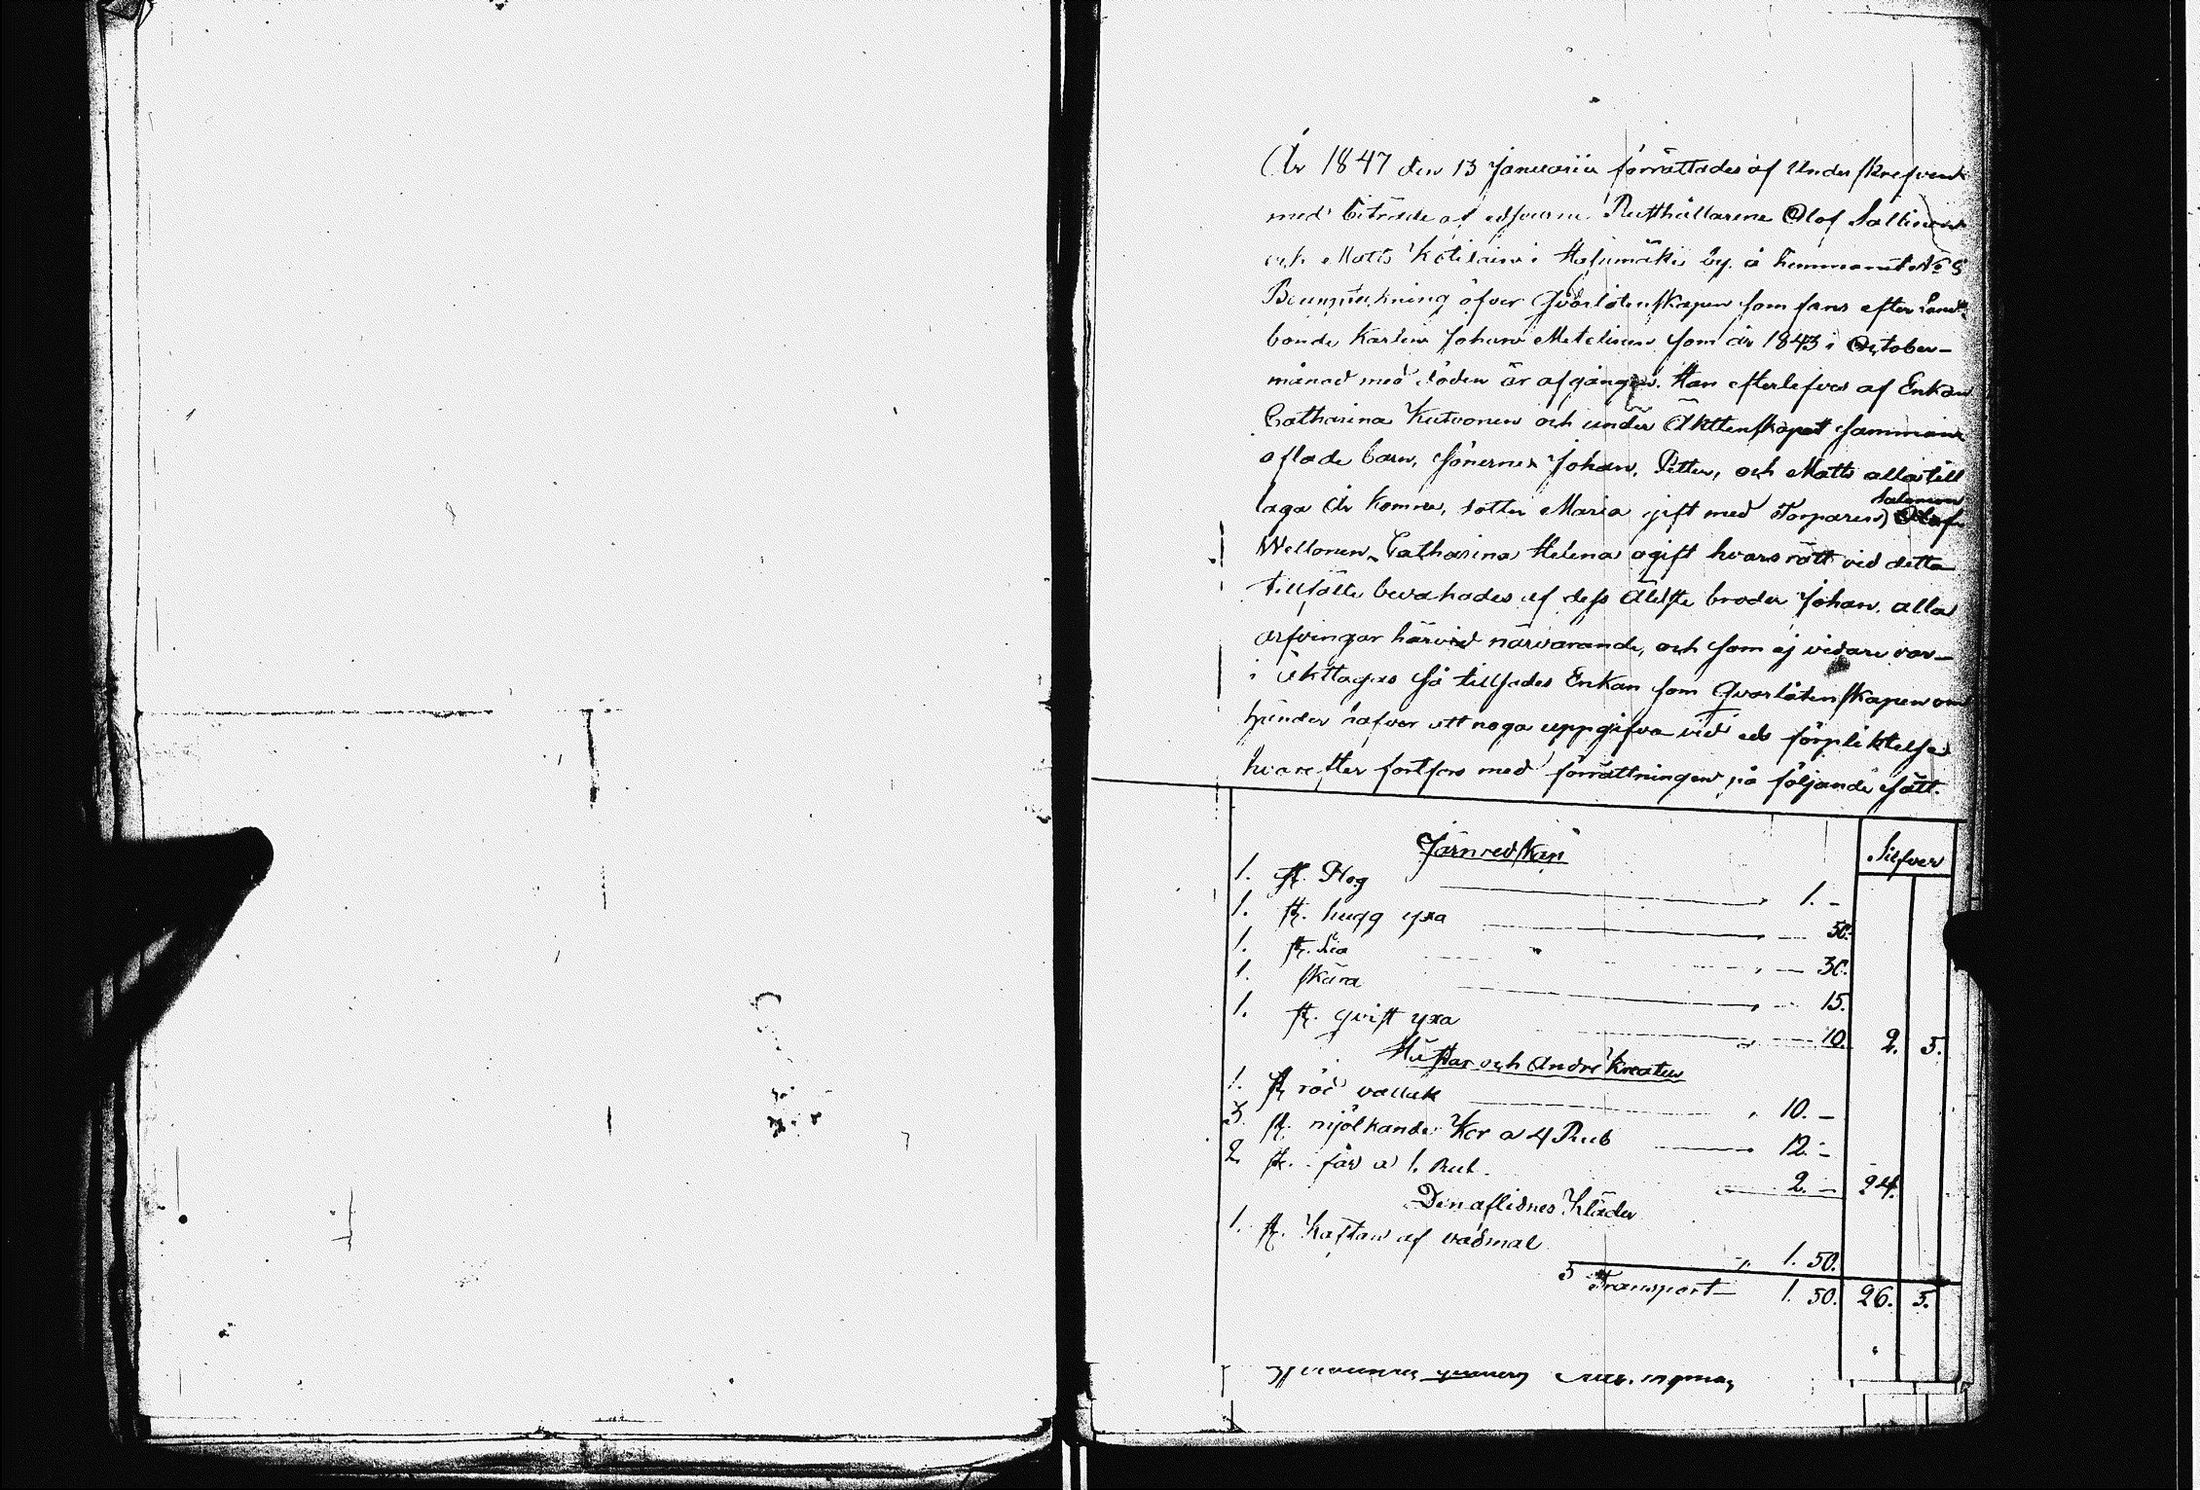 År 1847 den 13 Januarii förrättades af Underskrefven
med biträde af edsvurne Rusthållarene Olof Sallinen
och Matts Kötilain i Hafumäki by å hemmanet No 8
Bouppteckning öfver Qvarlåtenskapen som fans efter Land-
bonde Karlen Johan Metelinen som år 1843 i October-
månad med döden är afgången. Han efterlefves af Enkan
Catharina Kutvonen och under Äktenskapet samman
aflade barn, sönerne Johan, Petter, och Matts alla till
laga år komne, dotter Maria gift med Torparen Salomon
Wellonen, Catharina Helena ogift hvars rätt vid detta
tillfälle bevakades af dess äldste broder Johan, alla
arfvingar härvid närvarande, och som ej vidare var
i akttagas så tillsades Enkan som Qvarlåtenskapen om
händer hafver att noga uppgifva vid eds förpliktelse
hvarefter fortfors med förrättningen på följande sätt.
Järnredskap
Silfver
1. st. Plog 1. -
1. st. hugg yxa 50.
1. st. Lia 30.
1. skära 15.
1. st. qvist yxa 10. 2. 5.
Hästar och Andre Kreatur
1. st röd vallak 10. -
3. st. mjölkande Kor a 4 Rub 12. -
2. st. får a 1. Rub. 2. - 24.
Den aflidnes Kläder
1. st. Kaftan af vadmal 1. 50.
Transport 1. 50. 26. 5.